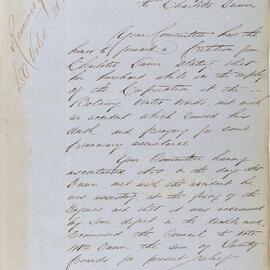 to Charlotte Dawe
Your Committee has the
honor to forward a Petition from
Charlotte Dawe stating that
her husband while in the employ
of the Corporation at the
Botany Water Works met with
an accident which caused his
death and praying for some
pecuniary assistance.
Your Committee having
ascertained that on the day
Dawe met with the accident he
was assisting at the fixing of the
Engines and that it was occasioned
by some defect in the
recommend the Council to vote
Mrs Dawe the sum of Twenty
Pounds for present relief